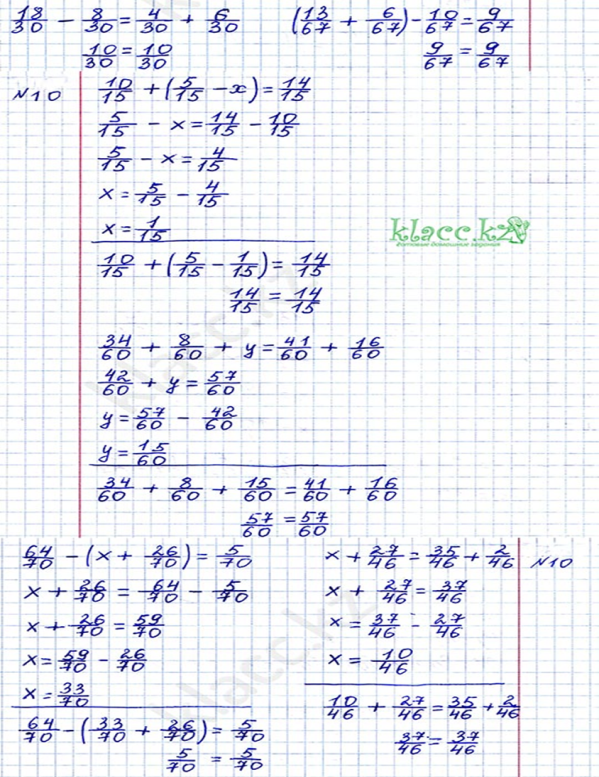 18/30 - 8/30 = 4/30 + 6/30
10/30 = 10/30
(13/67 + 6/67) - 10/67 = 9/67
9/67 = 9/67
N10
10/15 + (5/15 - x) = 14/15
5/15 - x = 14/15 - 10/15
5/15 - x = 4/15
x = 5/15 - 4/15
x = 1/15
10/15 + (5/15 - 1/15) = 14/15
14/15 = 14/15
klacc.kz
готовые домашние задания
34/60 + 8/60 + y = 41/60 + 16/60
42/60 + y = 57/60
y = 57/60 - 42/60
y = 15/60
34/60 + 8/60 + 15/60 = 41/60 + 16/60
57/60 = 57/60
64/70 - (x + 26/70) = 5/70
x + 26/70 = 64/70 - 5/70
x + 26/70 = 59/70
x = 59/70 - 26/70
x = 33/70
64/70 - (33/70 + 26/70) = 5/70
5/70 = 5/70
N10
x + 27/46 = 35/46 + 2/46
x + 27/46 = 37/46
x = 37/46 - 27/46
x = 10/46
10/46 + 27/46 = 35/46 + 2/46
37/46 = 37/46